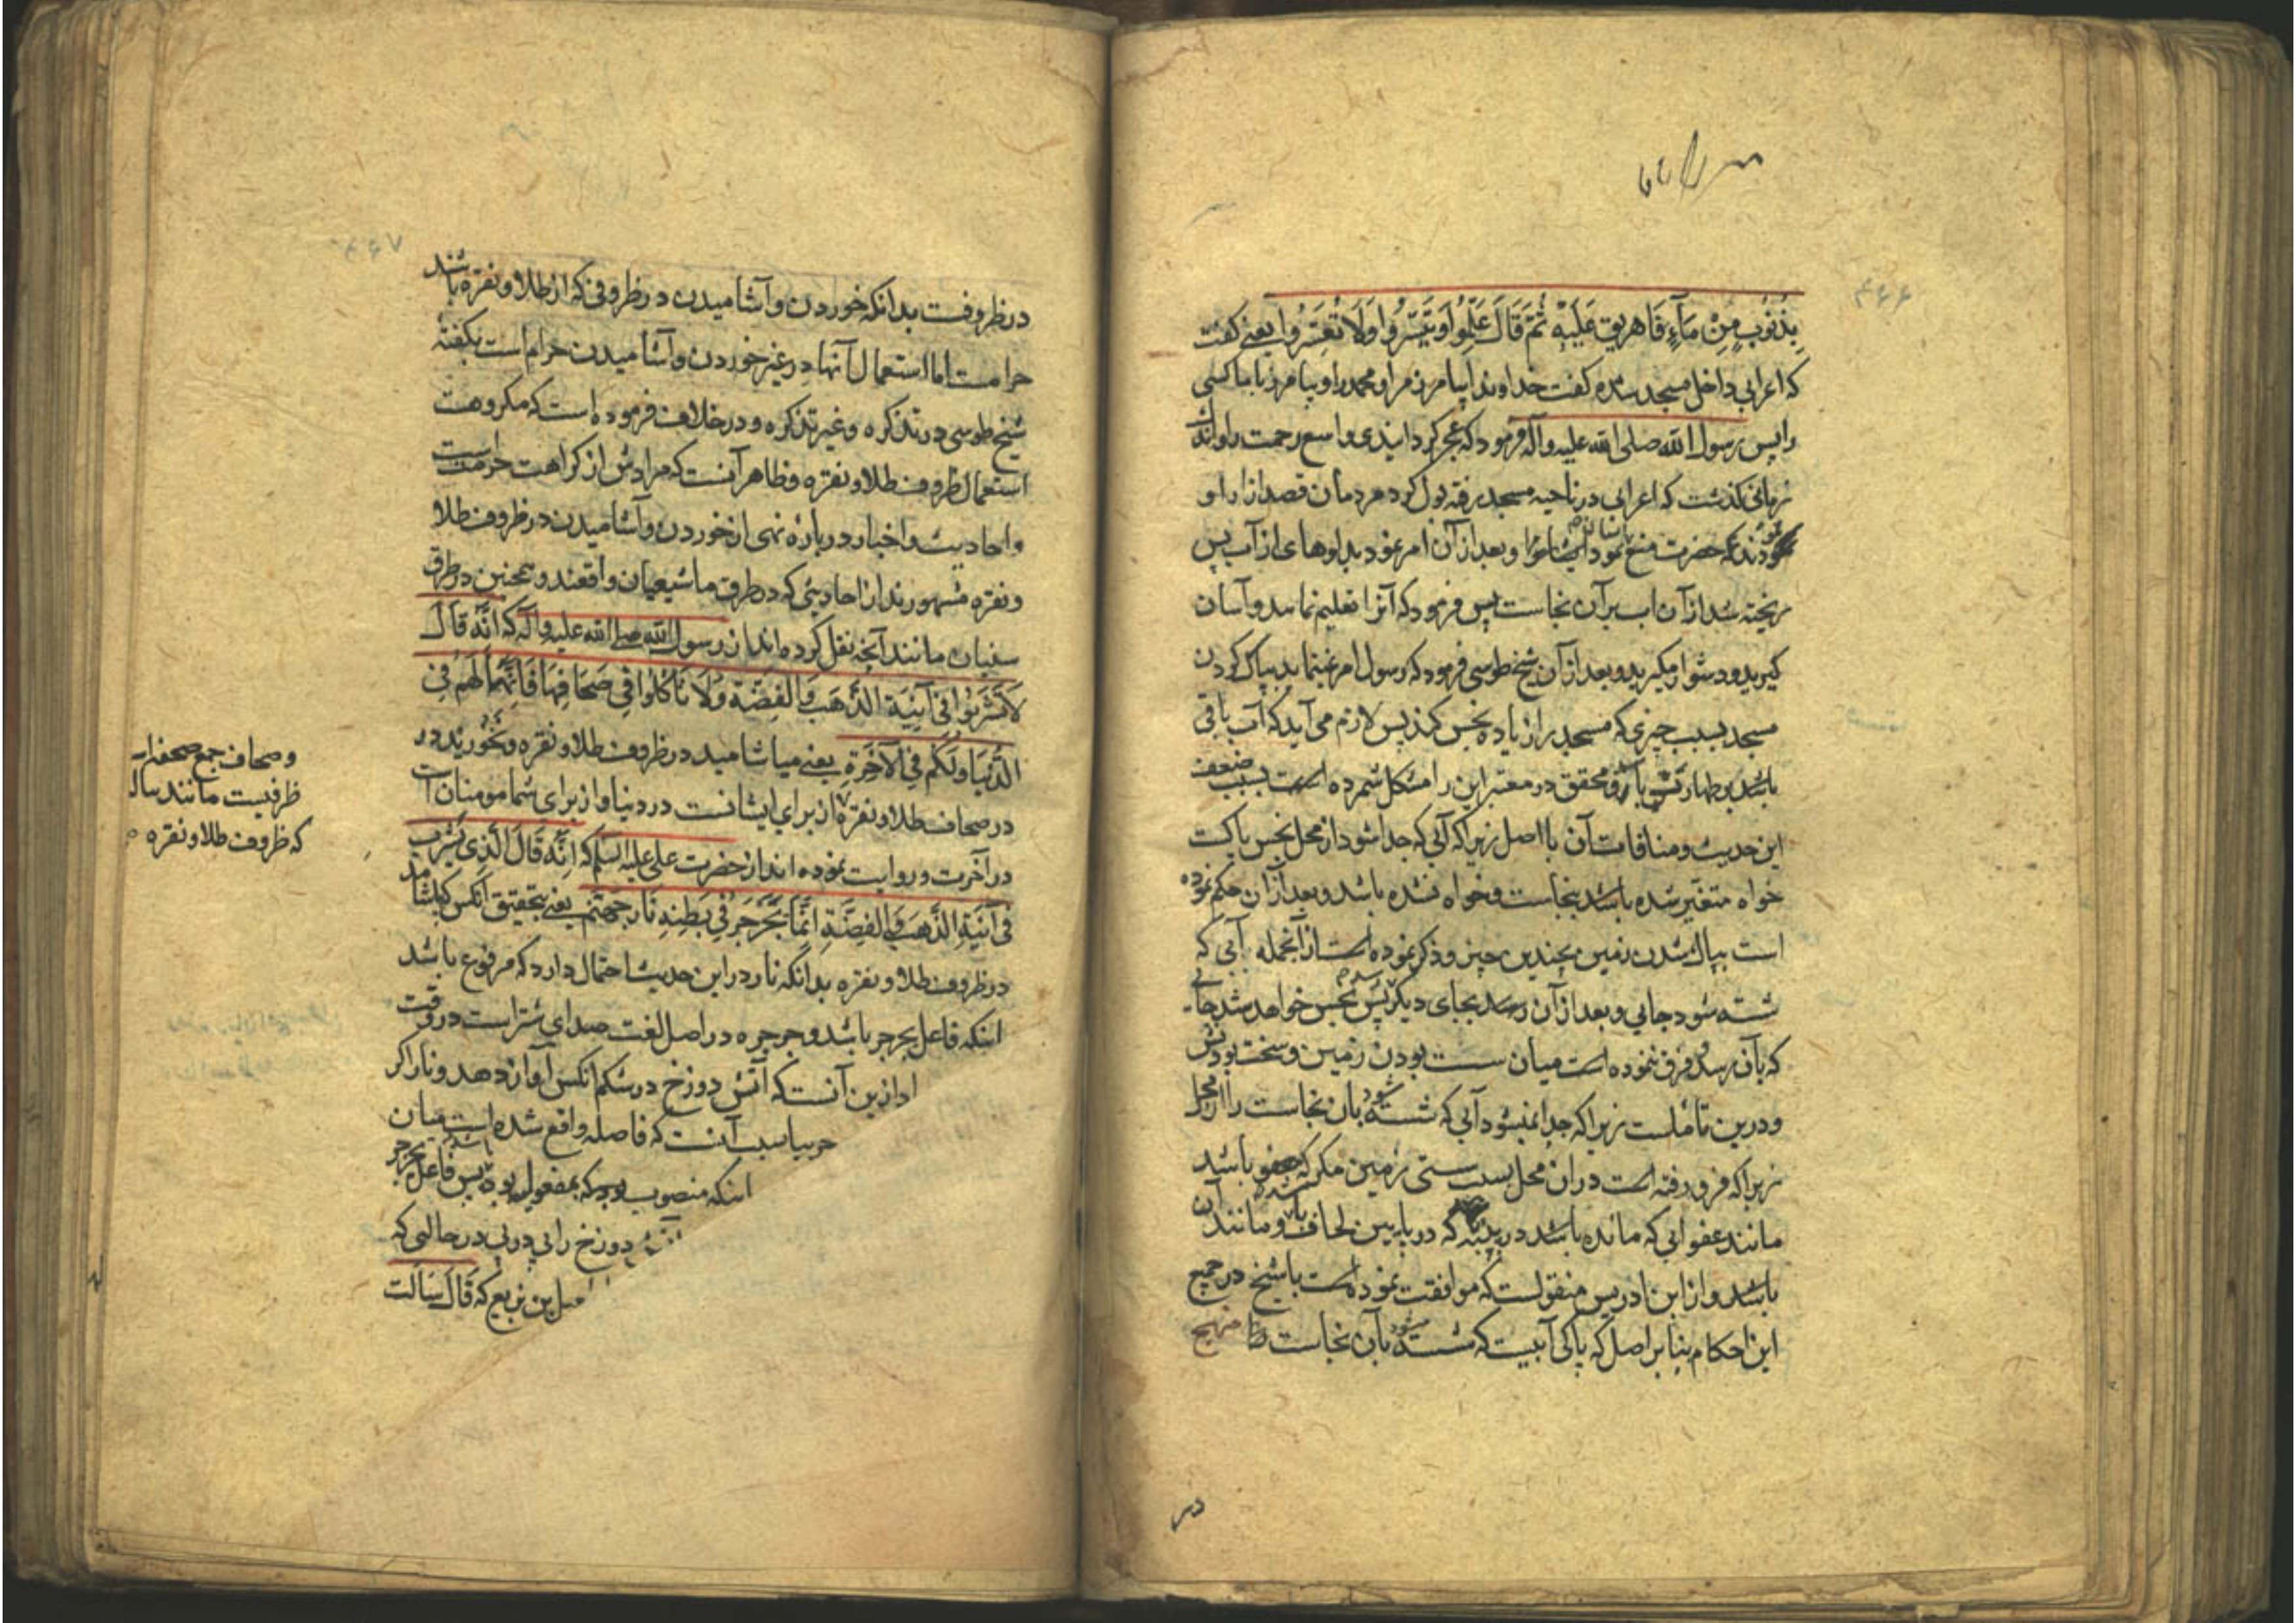 ۴۶۶
بِذَنُوبٍ مِنْ مَآءٍ فَاهریق عَلَیْهِ ثُمَّ قَالَ عَلِّمُوا وَیَسِّرُوا وَلَا تُعَسِّرُوا یعنی گفت
که اعرابی داخل مسجد شده گفت خداوندا بیامرز مرا و محمد را و بیامرز با ما کسی
را پس رسول الله صلی الله علیه وآله فرمود که عجز گردانیدی واسع رحمت را و اندک
زمانی گذشت که اعرابی در ناحیه مسجد رفته بول کرد مردمان قصد ازار او
نمودند که حضرت منع نمود ایشانرا و بعد از آن امر نمود بدلوهای از آب پس
ریخته شد از آن اب بر آن نجاست پس فرمود که آنرا تعلیم نماید و آسان
گیرید و دشوار مگیرید و بعد از آن شیخ طوسی فرمود که رسول امر نمینماید بپاک کردن
مسجد بسبب چیزی که مسجد را زیاده نجس کند پس لازم می آید که آب باقی
باشد بر طهارتش و محقق در معتبر این را مشکل شمرده است بسبب ضعف
این حدیث و منافات آن با اصل زیرا که آبی که جدا شود از محل نجس پاکست
خواه متغیر شده باشد بنجاست و خواه نشده باشد و بعد از آن حکم نموده
است بپاک شدن زمین بچندین چیز و ذکر نموده است از آنجمله آبی که
شسته شود جایی و بعد از آن رسد بجای دیگر پس نجس خواهد شد جائی
که بآن رسد و فرق ننموده است میان سست بودن زمین و سخت بودنش
و درین تاملست زیرا که جدا نمیشود آبی که شسته شود بان نجاست را از محل
زیرا که فرو رفته است در ان محل بسبب سستی زمین مگر که عفو باشد
مانند عفو ابی که مانده باشد در پنبه که در پایین لحاف و مانند آن
باشد و از ابن ادریس منقولست که موافقت نموده است با شیخ در جمیع
این احکام بنا بر اصل که پاکی آبیست که شسته شود بآن نجاست منهج
در
۴۶۷
در ظروفست بدانکه خوردن و آشامیدن در ظروفی که از طلا و نقره باشند
حرامست اما استعمال آنها در غیر خوردن و آشامیدن حرام است بگفتهٔ
شیخ طوسی در تذکره و غیر تذکره و در خلاف فرموده است که مکروهست
استعمال ظروف طلا و نقره و ظاهر آنست که مرادش از کراهت حرمت است
و احادیث و اخبار در بارهٔ نهی از خوردن و آشامیدن در ظروف طلا
و نقره مشهورند از احادیثی که در طرق ما شیعیان واقعند و همچنین در طرق
سنیان مانند آنچه نقل کرده اند از رسول الله صلی الله علیه وآله که اَنَّهُ قَالَ
لَا تَشْرَبُوا فِی آنِیَةِ الذَّهَبِ وَالفِضَّةِ وَلَا تَاکُلُوا فِی صَحَافِهَا فَاِنَّهَا لَهُم فِی
الدُّنْیَا وَلَکُم فِی الْآخِرَةِ یعنی میاشامید در ظروف طلا و نقره و نخورید در
در صحاف طلا و نقره از برای ایشانست در دنیا و از برای شما مومنان است
در آخرت و روایت نموده اند از حضرت علی علیه السلم که اِنَّهُ قَالَ الَّذِی یَشْرَبُ
فِی آنِیَةِ الذَّهَبِ وَالفِضَّةِ اِنَّمَا یُجَرْجِرُ فِی بَطْنِهِ نَارُ جَهَنَّم یعنی بتحقیق آنکس که بیاشامد
در ظروف طلا و نقره بدانکه نار در این حدیث احتمال دارد که مرفوع باشد
اینکه فاعل یجرجر باشد و جرجره در اصل لغت صدای شتر است در وقت
از ین آنست که آتش دوزخ در شکم انکس آواز دهد و نار اگر
آنست که فاصله واقع شده است میان
اینکه منصوب بود که مفعول بود پس فاعل یجرجر
دوزخ را پی در پی در حالتی که
بن بزیع که قَالَ سَاَلْتُ
و صحاف جمع صحفه است
ظرفیست مانند پیاله
که ظروف طلا و نقره